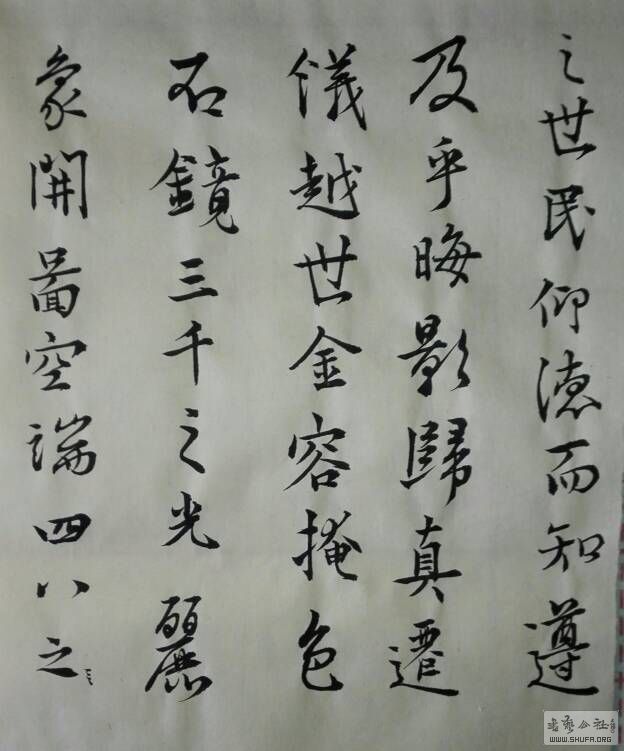 之世民仰德而知遵
及乎晦影歸真遷
儀越世金容掩色
石鏡三千之光麗
象開圖空端四八之
书艺公社
WWW.SHUFA.ORG